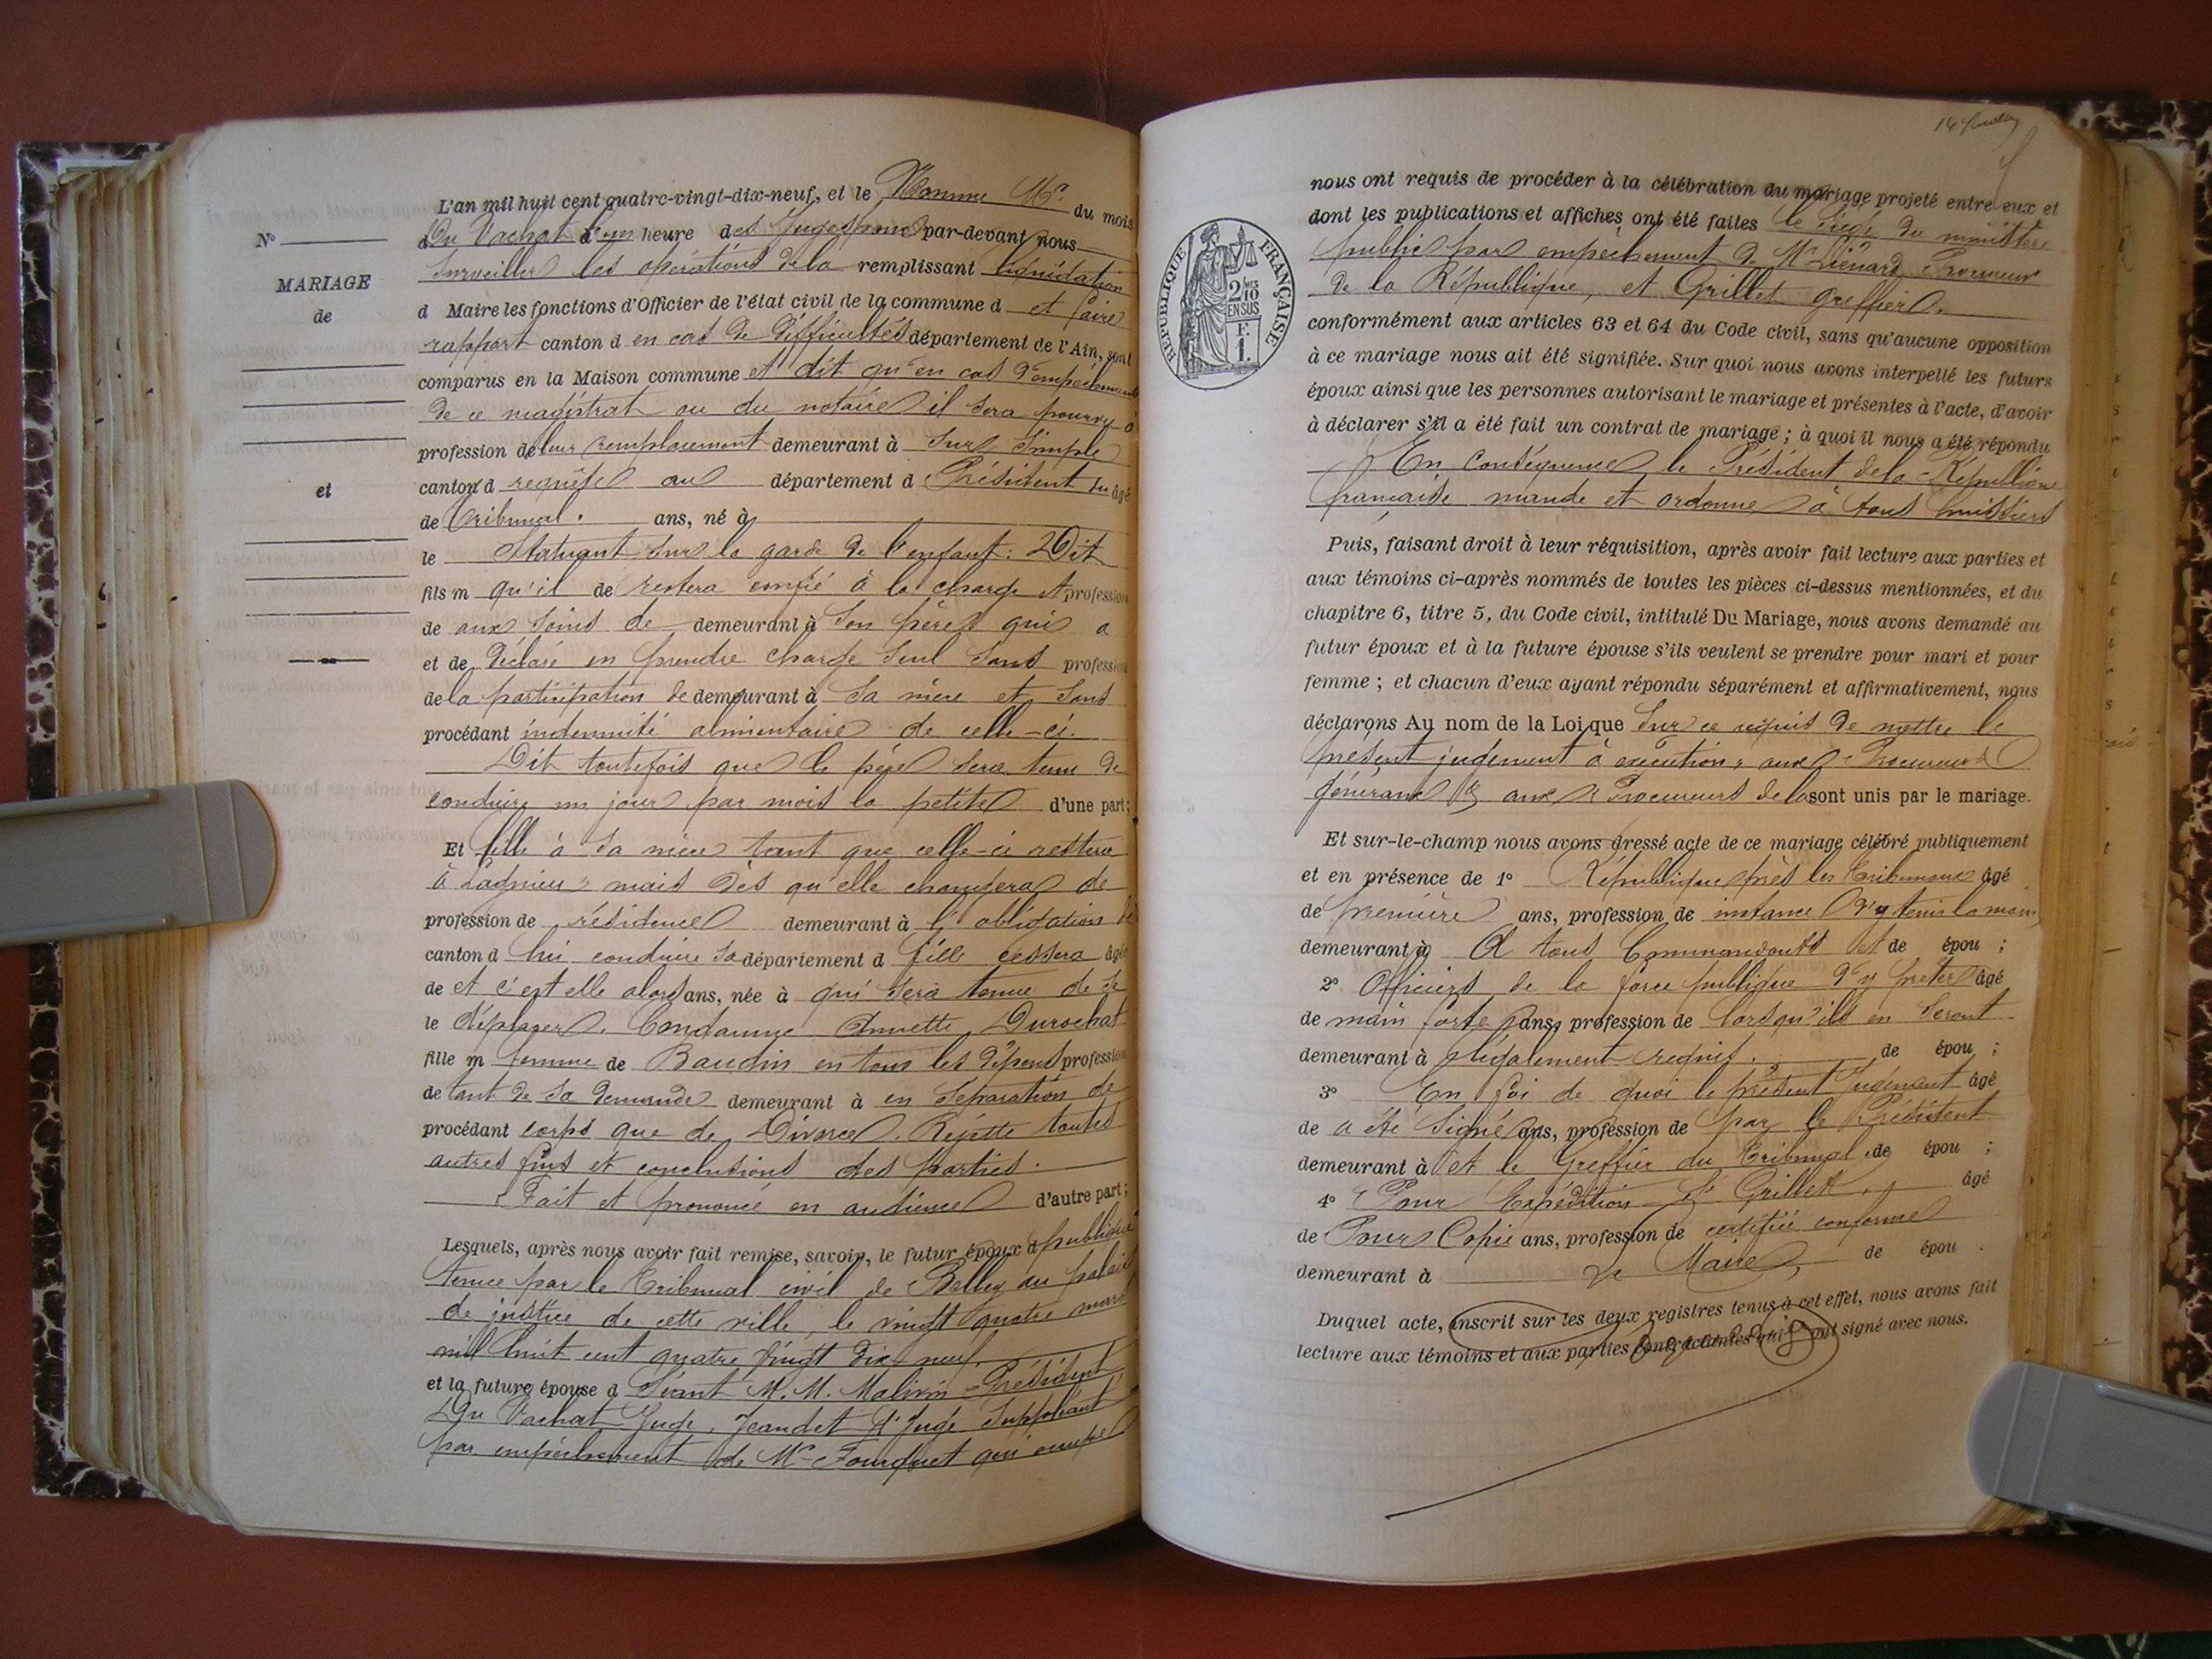 L'an mil huit cent quatre-vingt-dix-neuf, et le Nomme Mr du mois
d Du Vachat d'un heure des Juges pour par-devant nous
surveiller les opérations de la remplissant liquidation
d Maire les fonctions d'Officier de l'état civil de la commune d et faire
rapport canton d en cas de difficultés département de l'Ain, sont
comparus en la Maison commune et dit qu'en cas d'empêchement
de ce magistrat ou du notaire il sera pourvu à
profession de leur remplacement demeurant à sur simple
canton d requête au département d Président du âgé
de Tribunal. ans, né à
le Statuant sur la garde de l'enfant: Dit
fils m qu'il de restera confié à la charge et profession
de aux soins de demeurant à son père qui a
et de déclaré en prendre charge seul sans profession
de la participation de demeurant à sa mère et sans
procédant indemnité alimentaire de celle-ci.
Dit toutefois que le père sera tenu de
conduire un jour par mois la petite d'une part;
Et fille à sa mère tant que celle-ci restera
à Lagnieu, mais dès qu'elle changera de
profession de résidence demeurant à l'obligation de
canton d lui conduire sa département d fille cessera âgée
de et c'est elle alors ans, née à qui sera tenue de se
le déplacer. Condamne Annette Durochat
fille m femme de Baudin en tous les dépens profession
de tant de sa demande demeurant à en séparation de
procédant corps que de Divorce. Rejette toutes
autres fins et conclusions des parties.
Fait et prononcé en audience d'autre part;
Lesquels, après nous avoir fait remise, savoir, le futur époux d publique
tenue par le Tribunal civil de Belley au palais
de justice de cette ville, le vingt quatre mars
mil huit cent quatre vingt dix neuf.
et la future épouse d Séant M. M. Malivin Président
Du Vachat Juge, Jeandet Juge Suppléant
par empêchement de Mr Fourquet qui occupe
N°
MARIAGE
de
et
nous ont requis de procéder à la célébration du mariage projeté entre eux et
dont les publications et affiches ont été faites le siège du ministère
public par empêchement de Mr Liénard Procureur
de la République, et Grillet greffier.
REPUBLIQUE FRANÇAISE
2/10 EN SUS
F. 1.
conformément aux articles 63 et 64 du Code civil, sans qu'aucune opposition
à ce mariage nous ait été signifiée. Sur quoi nous avons interpellé les futurs
époux ainsi que les personnes autorisant le mariage et présentes à l'acte, d'avoir
à déclarer s'il a été fait un contrat de mariage; à quoi il nous a été répondu
En conséquence le Président de la République
française mande et ordonne à tous huissiers
Puis, faisant droit à leur réquisition, après avoir fait lecture aux parties et
aux témoins ci-après nommés de toutes les pièces ci-dessus mentionnées, et du
chapitre 6, titre 5, du Code civil, intitulé Du Mariage, nous avons demandé au
futur époux et à la future épouse s'ils veulent se prendre pour mari et pour
femme; et chacun d'eux ayant répondu séparément et affirmativement, nous
déclarons Au nom de la Loi que sur ce requis de mettre le
présent jugement à exécution, aux Procureurs
Généraux & aux Procureurs de la sont unis par le mariage.
Et sur-le-champ nous avons dressé acte de ce mariage célébré publiquement
et en présence de 1° République près les Tribunaux âgé
de première ans, profession de instance d'y tenir la main,
demeurant à A tous Commandants et de épou ;
2° Officiers de la force publique d'y prêter âgé
de main forte ans, profession de lorsqu'ils en seront
demeurant à légalement requis. de épou ;
3° En foi de quoi le présent Jugement âgé
de a été signé ans, profession de par le Président
demeurant à et le Greffier du Tribunal. de épou ;
4° Pour Expédition Grillet. âgé
de Pour Copie ans, profession de certifiée conforme
demeurant à Le Maire, de épou .
Duquel acte, inscrit sur les deux registres tenus à cet effet, nous avons fait
lecture aux témoins et aux parties contractantes qui ont signé avec nous.